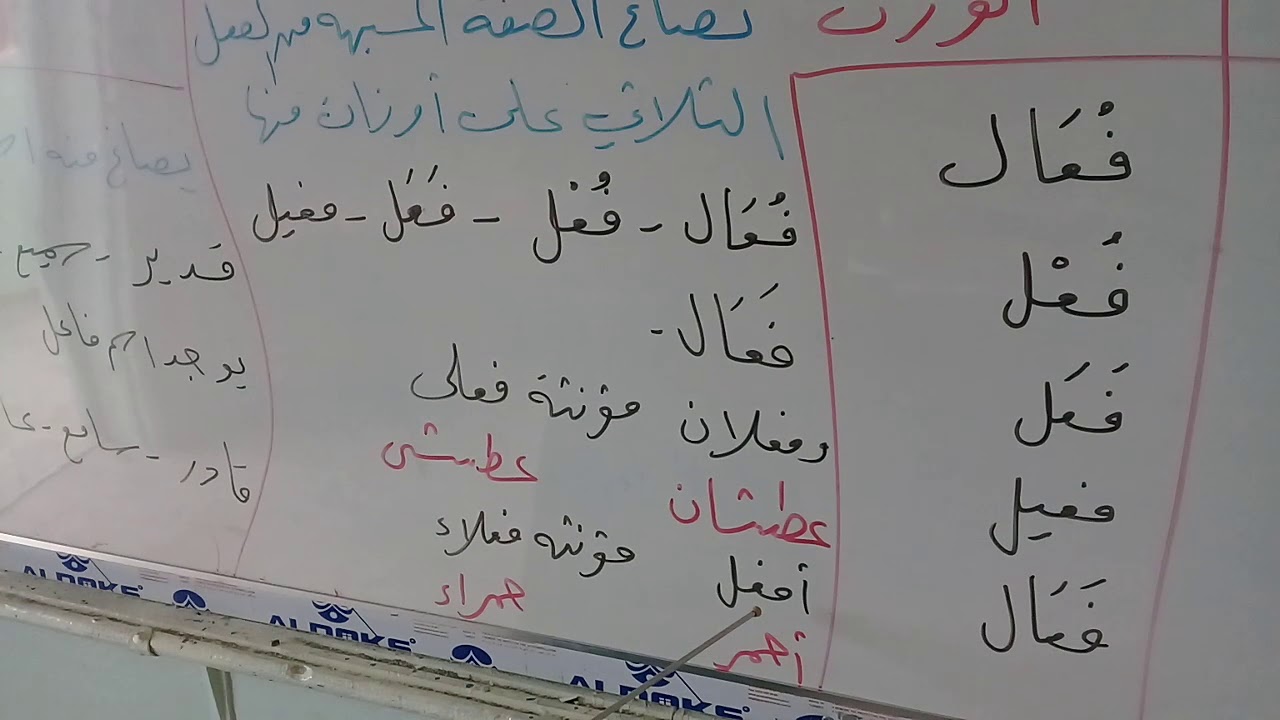 الوزن
فُعَال
فُعْل
فَعَل
فعيل
فَعَال
تصاغ الصفة المشبهة من الفعل
الثلاثي على أوزان منها
فُعَال - فُعْل - فَعَل - فعيل
فَعَال -
وفعلان مؤنثة فعلى
عطشان عطشى
أفعل مؤنثه فعلاء
أحمر حمراء
يصاغ منه
قدير - سميع -
يوجد اسم فاعل
قادر - سامع -
ALOOKS
ALOOKS
ALOOKS